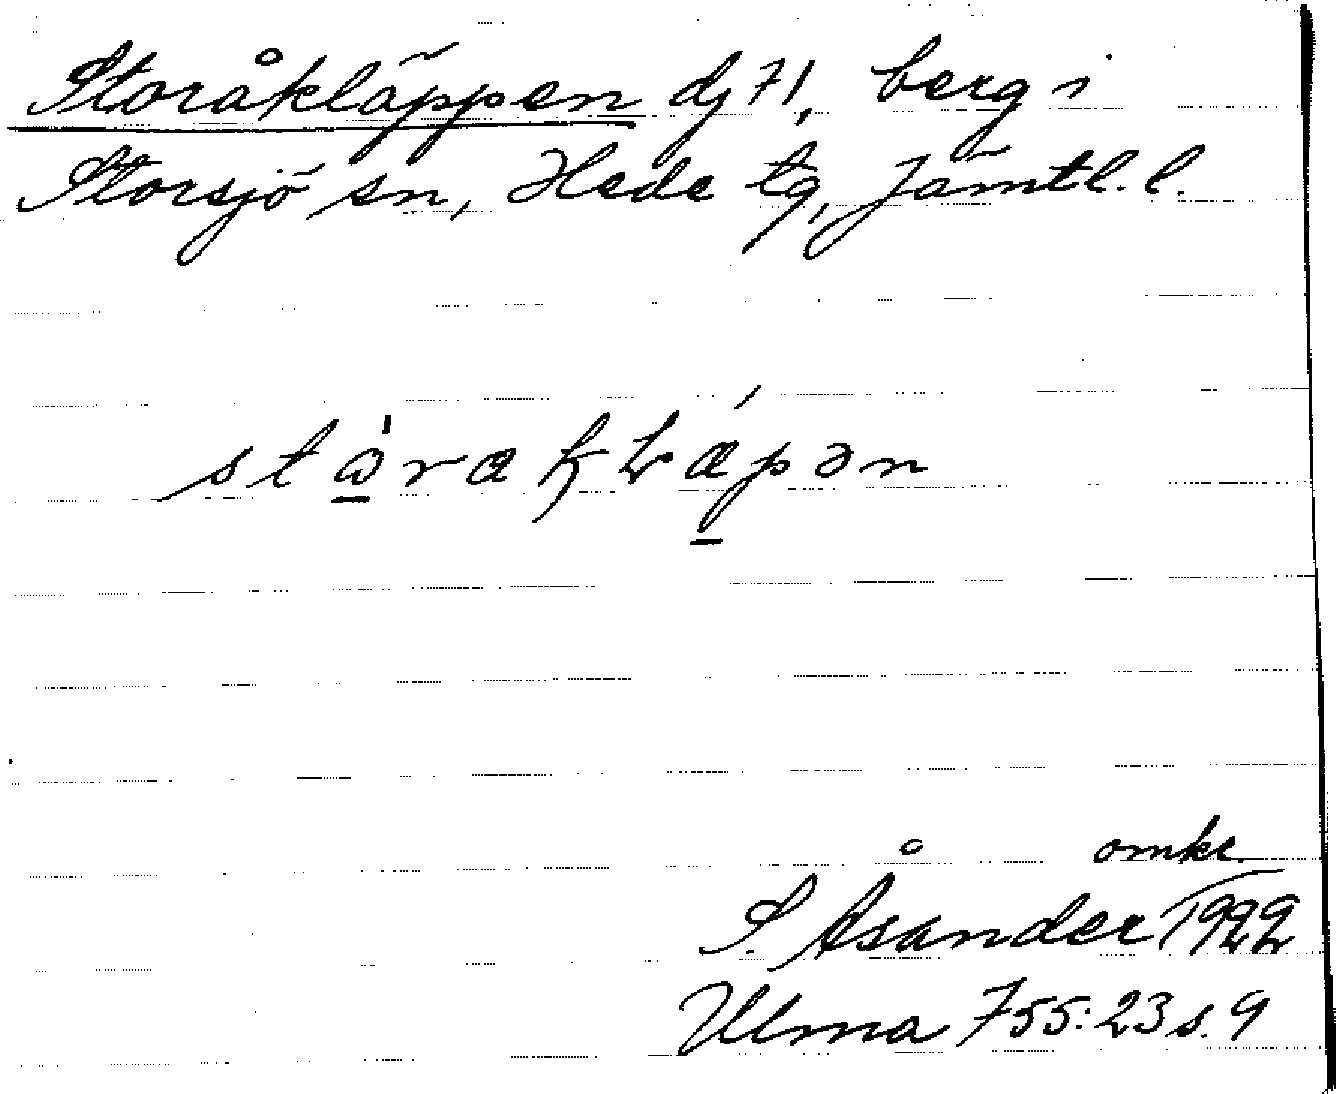 Storåkläppen dj 71, berg i
Storsjö sn, Hede tg, Jämtl. l.
omkr.
S. Åsander 1922
Ulma 755:23 s. 9